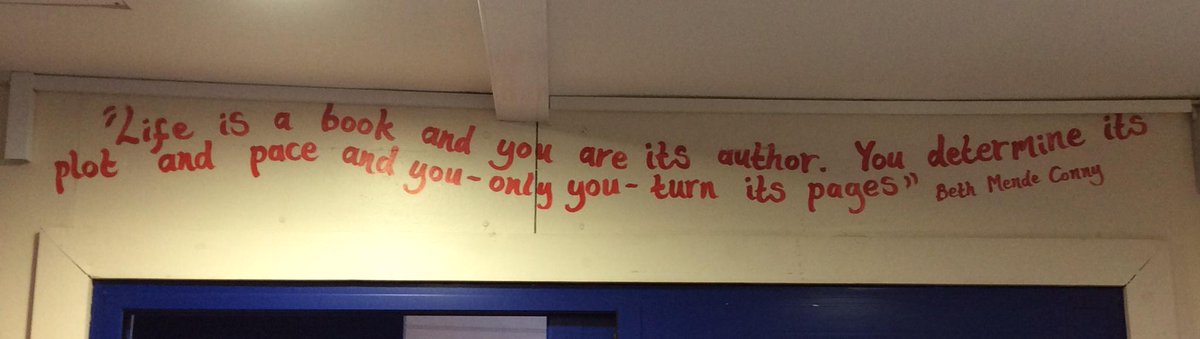 "Life is a book and you are its author. You determine its
plot and pace and you-only you-turn its pages" Beth Mende Conny